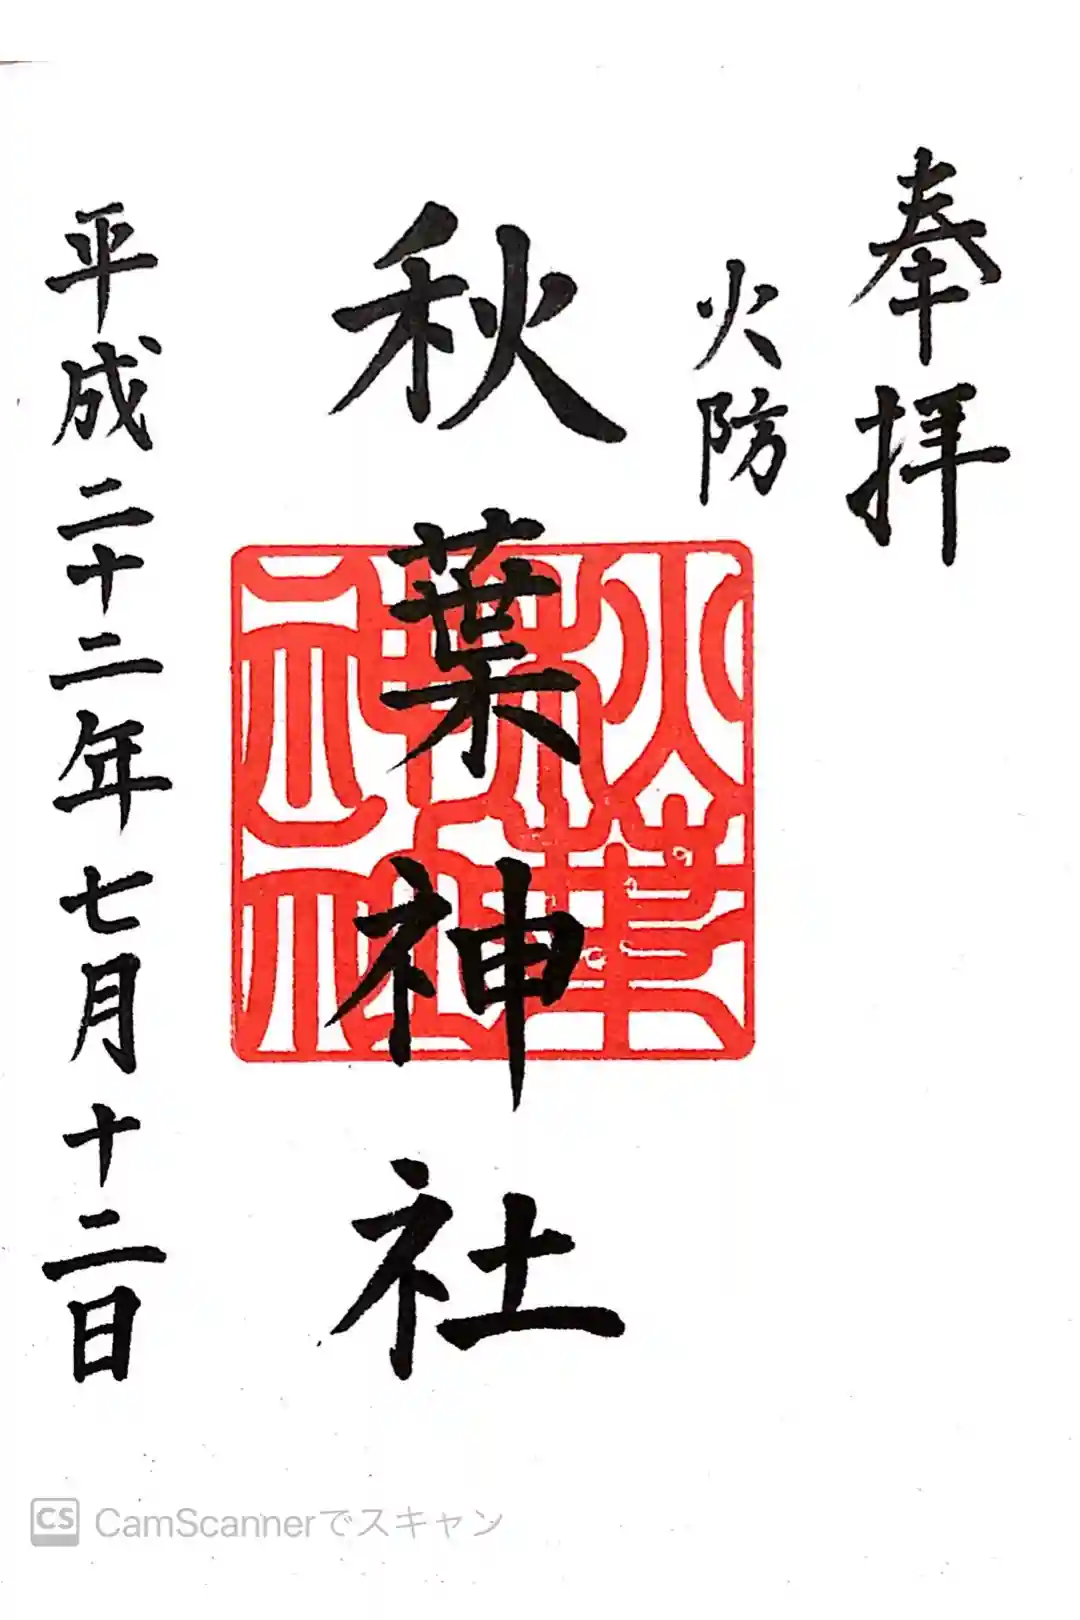 奉拝
火防
秋葉神社
秋葉神社
平成二十二年七月十二日
CS CamScannerでスキャン